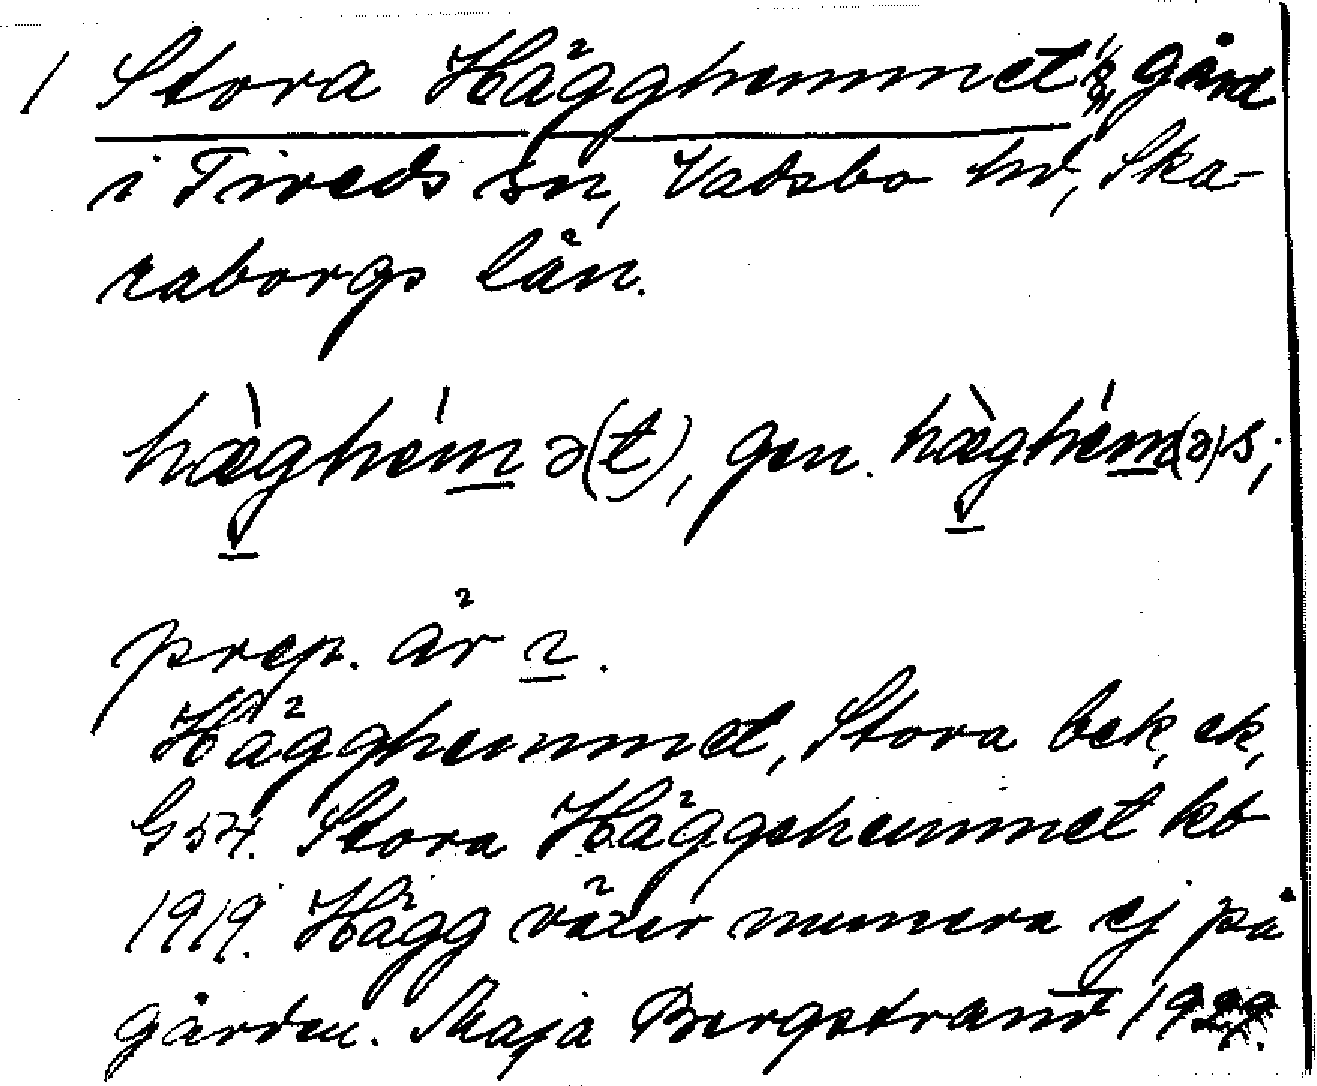 1 Stora Hägghemmet 1/8, gård
i Tiveds sn, Vadsbo hd, Ska-
raborgs län.
hæ̀ghém ə(t), gen. hæ̀ghém(ə)s;
prep. är 2.
Hägghemmet, Stora bek, ek,
G54. Stora Häggehemmet kb
1919. Hägg växer numera ej på
gården. Maja Bergstrand